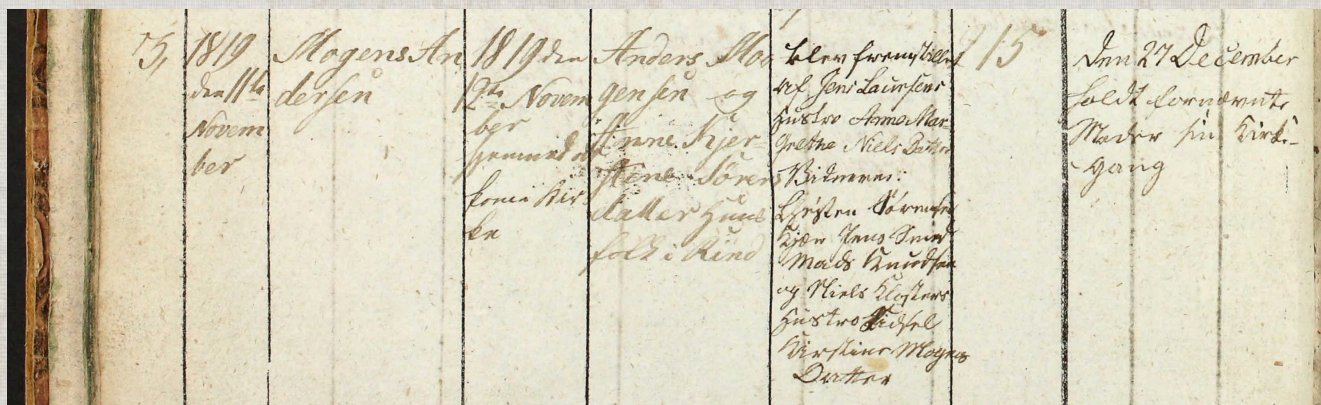 5,
1819
den 11te
Novem
ber
Mogens An
dersen
1819 den
12te Novem
ber
hjemmedøbt
kom i Kir
ke
Anders Mo
gensen og
Anne Kjer-
stene Sørens
datter Huus
folk i Rind
blev fremstillet
af Jens Laursens
Hustro Anna Mar-
grethe Niels Datter
Vidnerne:
Christen Sørensen
Kjær Jens Smed
Mads Knudsen
og Niels Klosters
Hustro Sidsel
Kirstine Mogens
Datter
15
Den 27 December
holdt fornævnte
Moder sin Kirke-
gang